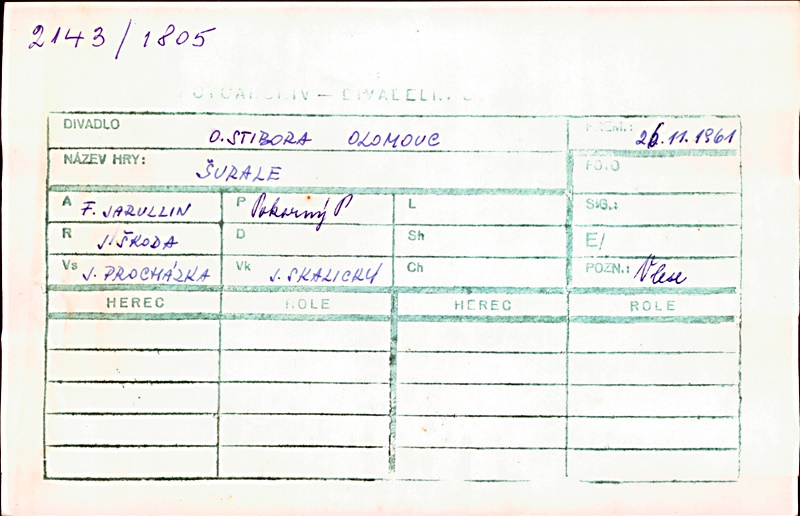 2143/1805
FOTOARCHIV — DIVADELNÍ
DIVADLO O. STIBORA OLOMOUC PREM.: 26.11.1961
NÁZEV HRY: ŠURALE FOTO
A F. JARULLIN P Pokorný P L SIG.:
R J. ŠKODA D Sh E/
Vs J. PROCHÁZKA Vk J. SKALICKÝ Ch POZN.: Vlese
HEREC ROLE HEREC ROLE